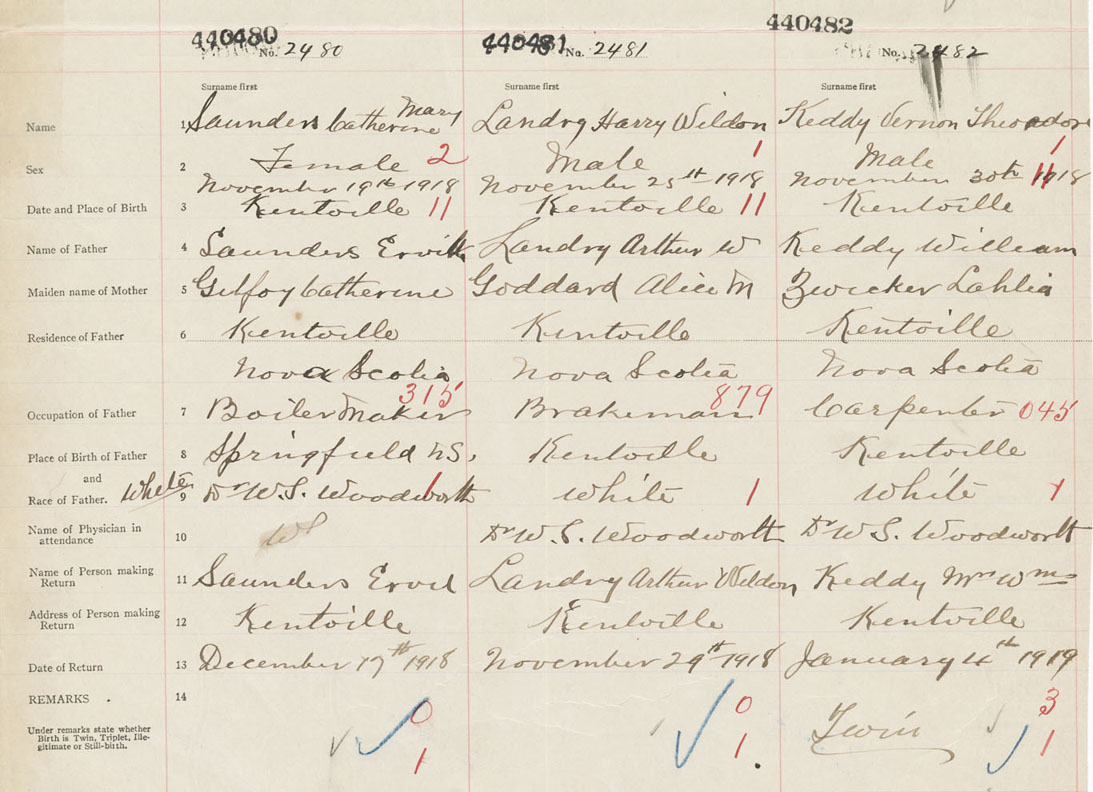 440480 440481 440482
No. 2480 No. 2481 No. 2482
Surname first Surname first Surname first
Mary
Name 1 Saunders Catherine Landry Harry Wildon Keddy Vernon Theodore
Sex 2 Female 2 Male 1 Male 1
November 19th 1918 November 25th 1918 November 30th 1918
Date and Place of Birth 3 Kentville 11 Kentville 11 Kentville 11
Name of Father 4 Saunders Landry Arthur W Keddy William
Maiden name of Mother 5 Gilfoy Catherine Goddard Alice M Zwicker Lahlia
Residence of Father 6 Kentville Kentville Kentville
Nova Scotia Nova Scotia Nova Scotia
315 879 045
Occupation of Father 7 Boiler Maker Brakeman Carpenter
Place of Birth of Father 8 Springfield N.S. Kentville Kentville
and
Race of Father. White 9 Dr W. S. Woodworth 1 White 1 White 1
Name of Physician in
attendance 10 W Dr W. S. Woodworth Dr W. S. Woodworth
Name of Person making
Return 11 Saunders Landry Arthur Wildon Keddy Mrs Wm
Address of Person making
Return 12 Kentville Kentville Kentville
Date of Return 13 December 17th 1918 November 29th 1918 January 4th 1919
REMARKS . 14
Under remarks state whether
Birth is Twin, Triplet, Ille-
gitimate or Still-birth.
0 0 3
Twin
1 1 1